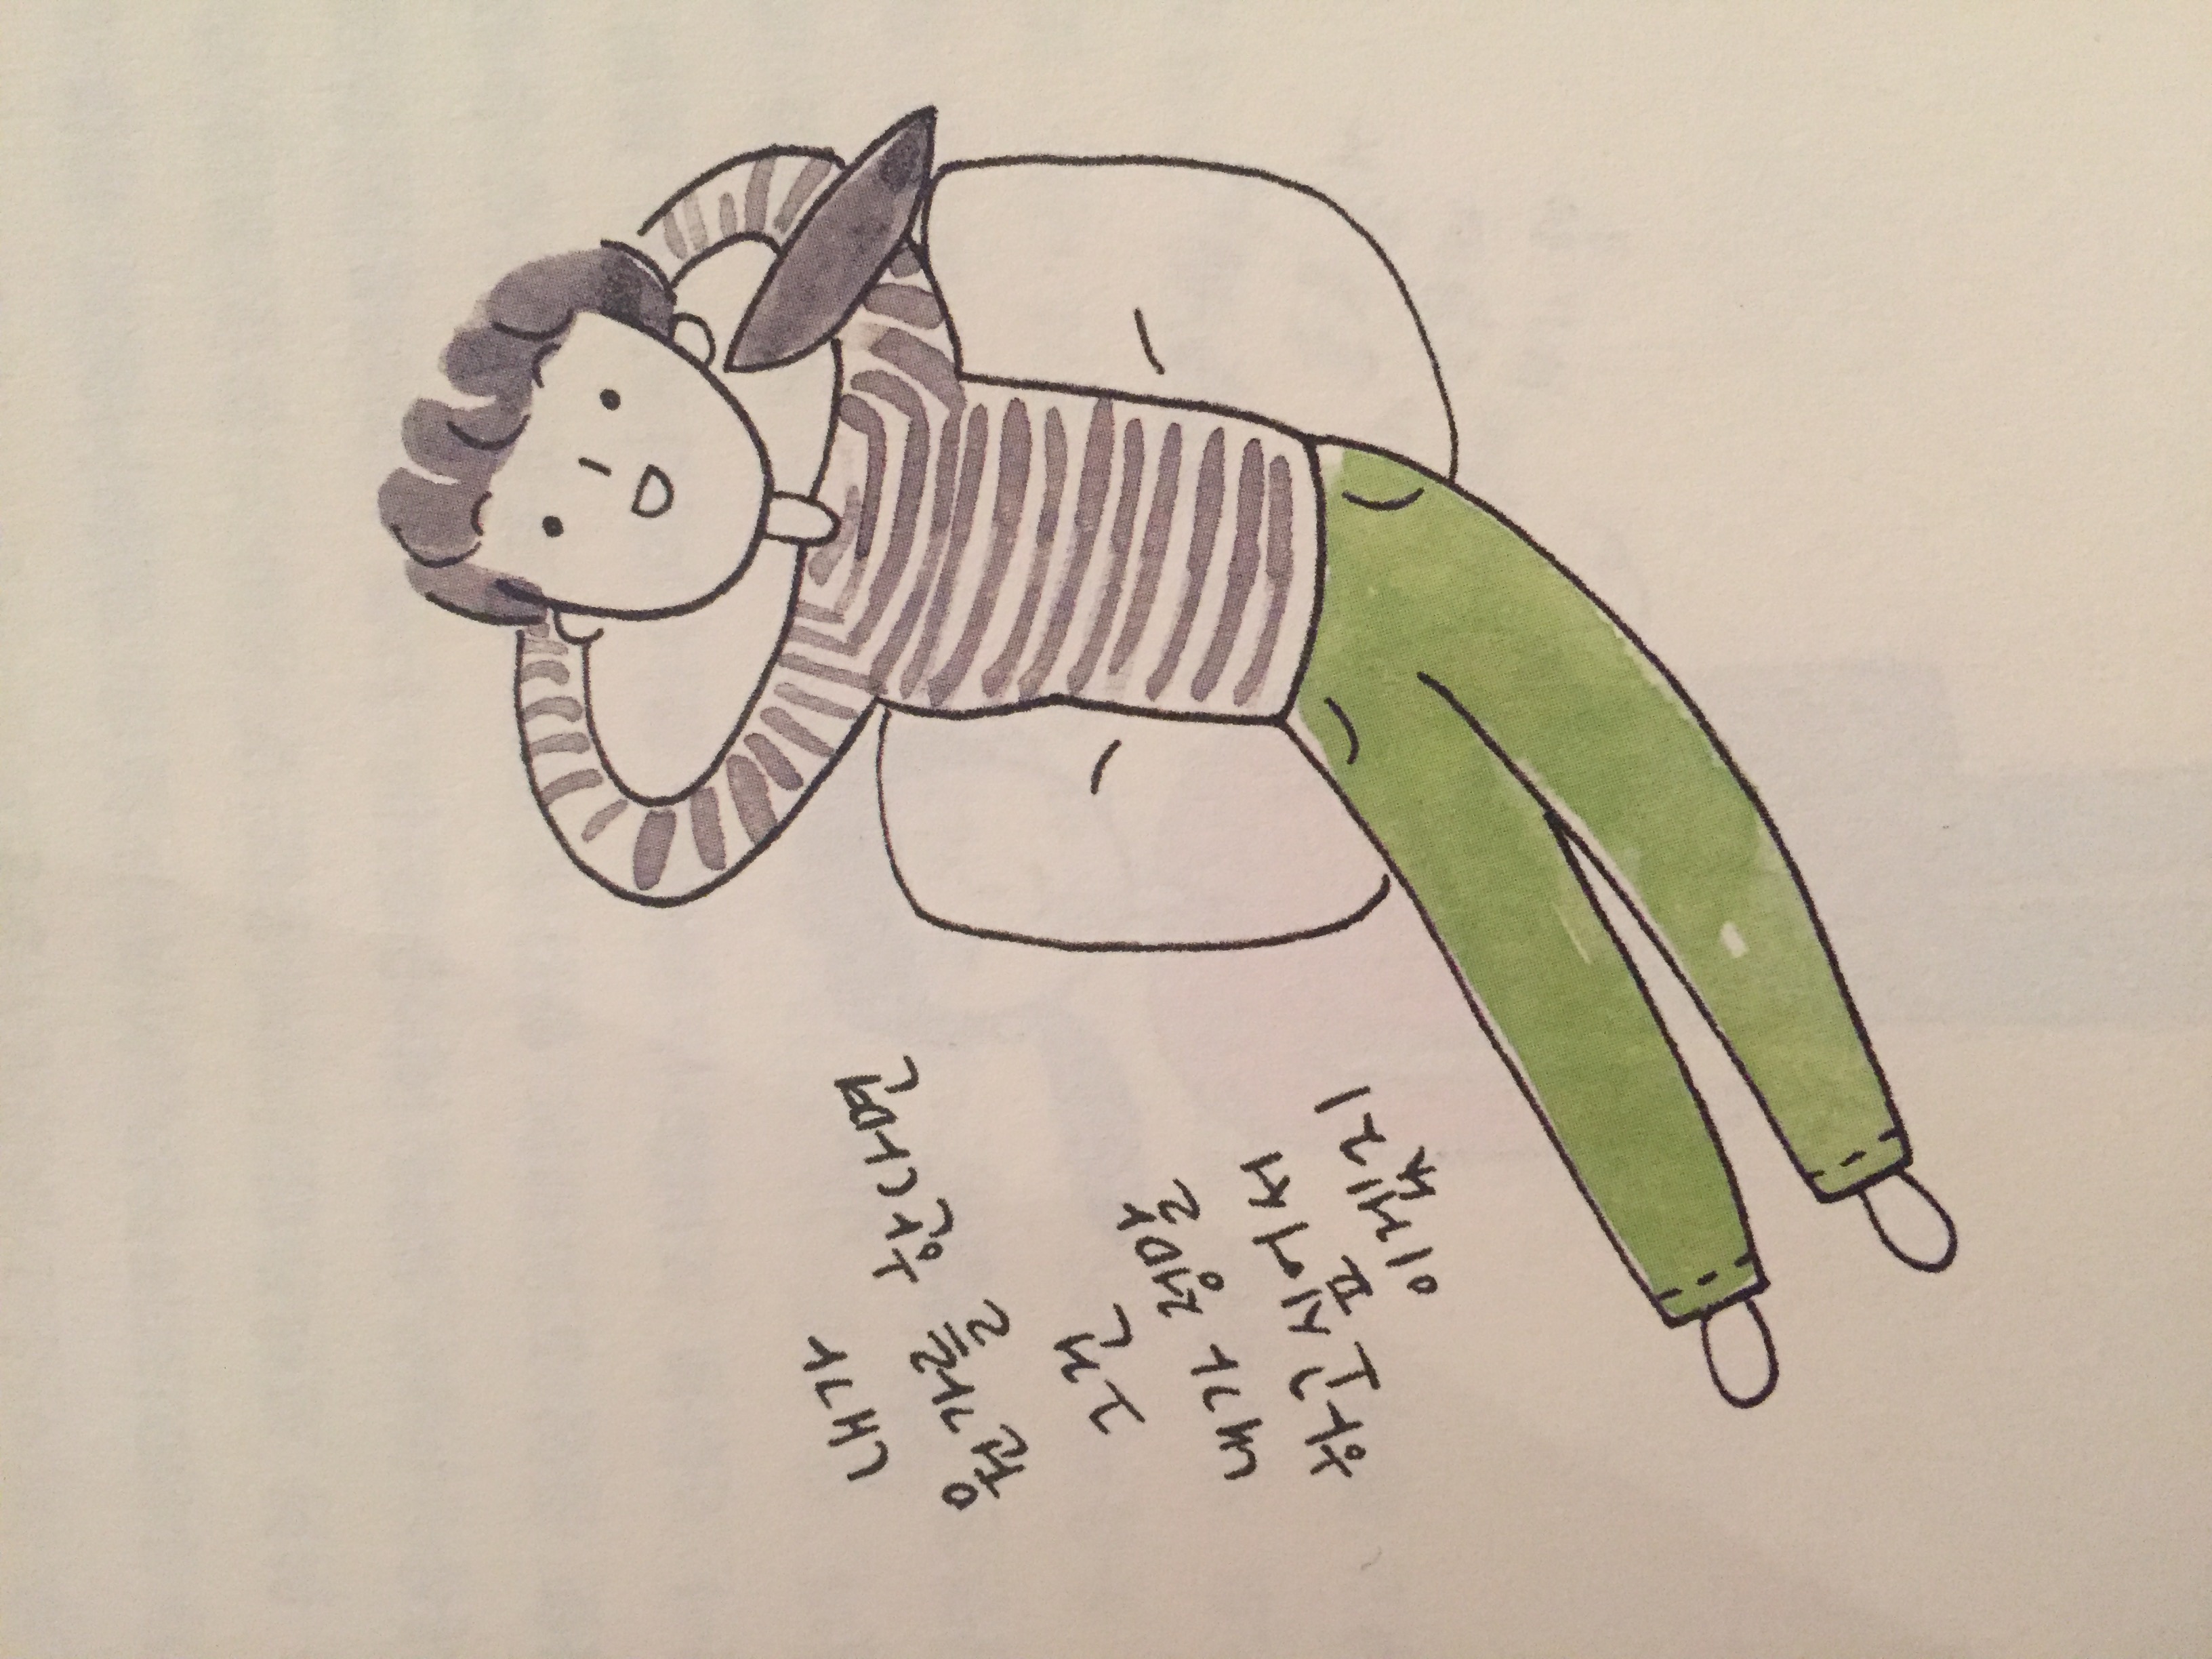 내가
뭔가를 한다면
그건
내가 정말
하고싶어서
이겠지